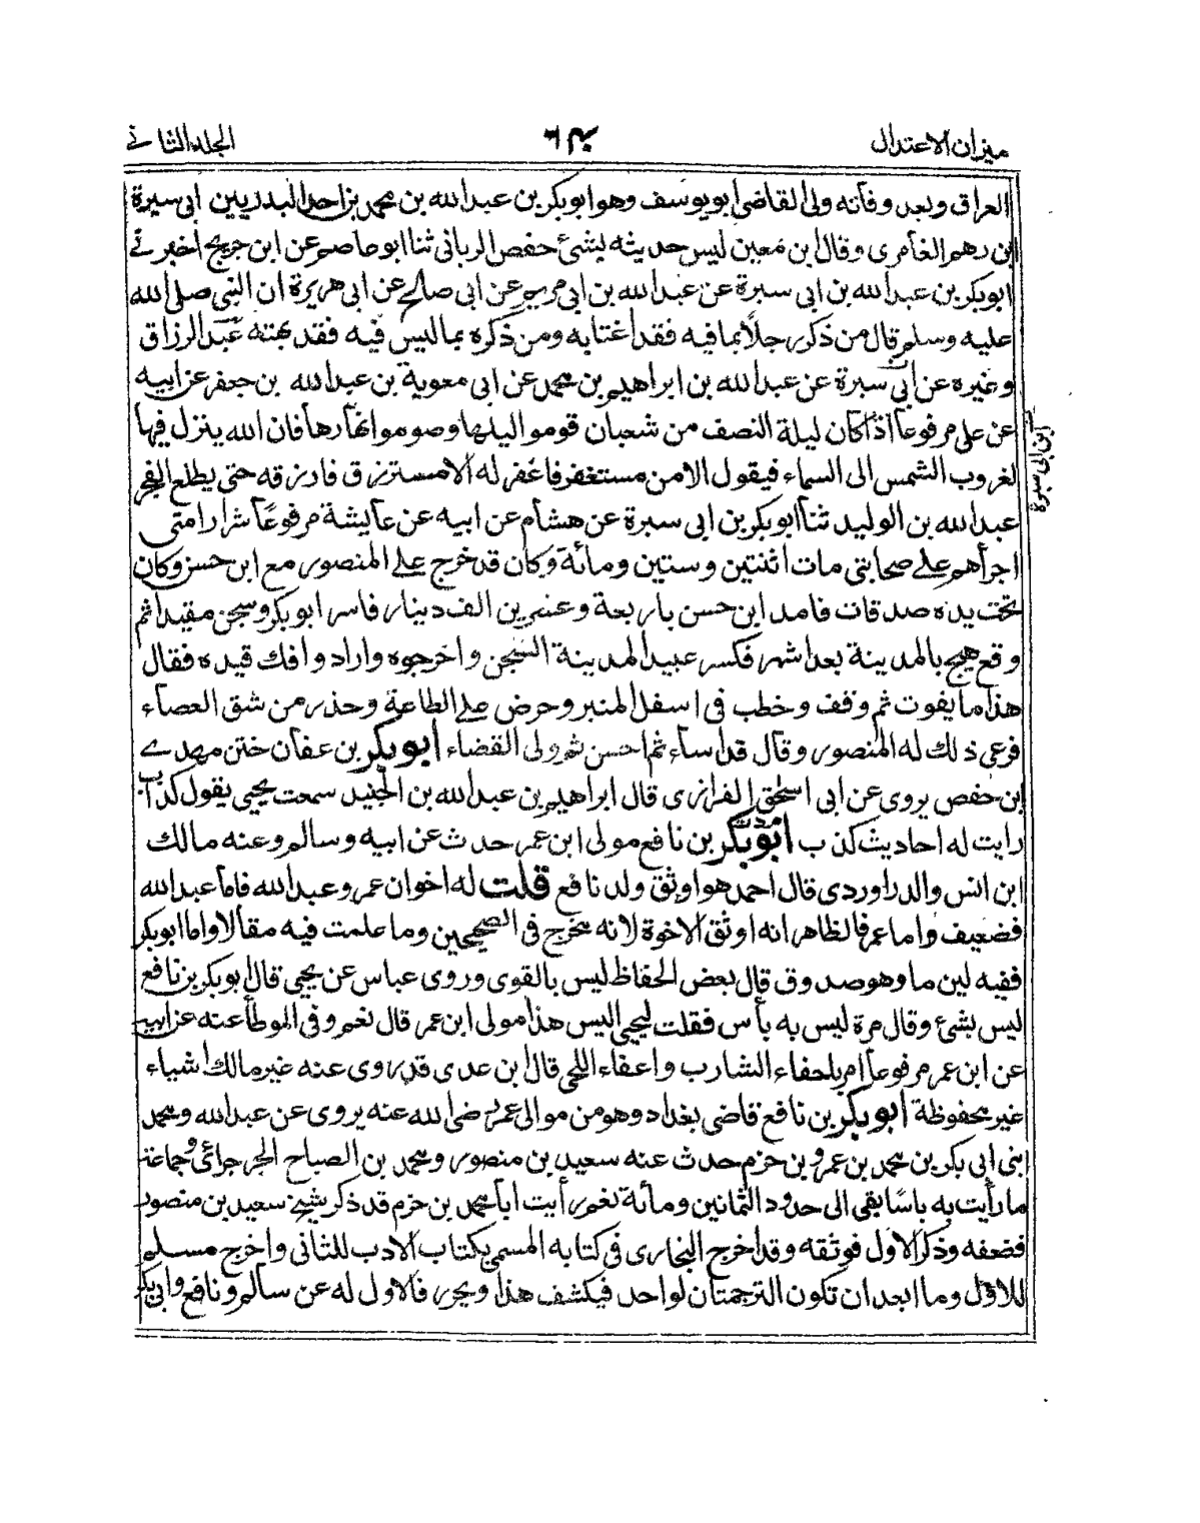 ميزان الاعتدال
الجلد الثانے
العراق وبعد وفاته ولى القاضى ابو يوسف وهو ابو بكر بن عبد الله بن محمد بن احد البدريين ابى سبرة
بن رهم العامرى وقال ابن معين ليس حديثه بشئ حفص الربانى ثنا ابو عاصم عن ابن جريج اخبرنے
ابو بكر بن عبد الله بن ابى سبرة عن عبد الله بن ابى مريم عن ابى صالح عن ابى هريرة ان النبى صلى الله
عليه وسلم قال من ذكر رجلاً بما فيه فقد اغتابه ومن ذكره بما ليس فيه فقد بهته عبد الرزاق
وغيره عن ابى سبرة عن عبد الله بن ابراهيم بن محمد عن ابى معوية بن عبد الله بن جعفر عن ابيه
عن على مرفوعاً اذا كان ليلة النصف من شعبان قوموا ليلها وصوموا نهارها فان الله ينزل فيها
لغروب الشمس الى السماء فيقول الا من مستغفر فاغفر له الا مسترزق فارزقه حتى يطلع الفجر
عبد الله بن الوليد ثنا ابو بكر بن ابى سبرة عن هشام عن ابيه عن عايشة مرفوعاً شرار امتى
اجرأهم على صحابتى مات اثنتين وستين ومائة وكان قد خرج على المنصور مع ابن حسن وكان
تحت يده صدقات فامد ابن حسن باربعة وعشرين الف دينار فاسر ابو بكر وسجن مقيدا ثم
وقع هيج بالمدينة بعد اشهر فكسر عبيد المدينة السجن واخرجوه وارادوا فك قيده فقال
هذا ما يفوت ثم وقف وخطب فى اسفل المنبر وحرض على الطاعة وحذر من شق العصاء
فرعى ذلك له المنصور وقال قد اساء ثم احسن ثم ولى القضاء ابو بكر بن عفان ختن مهدے
بن حفص يروى عن ابى اسحق الفزارى قال ابراهيم بن عبد الله بن الجنيد سمعت يحيى يقول كذاب
رايت له احاديث كذب ابو بكر بن نافع مولى ابن عمر حدث عن ابيه وسالم وعنه مالك
ابن انس والدراوردى قال احمد هو اوثق ولد نافع قلت له اخوان عمر وعبد الله فاما عبد الله
فضعيف واما عمر فالظاهر انه اوثق الاخوة لانه مخرج فى الصحيحين وما علمت فيه مقالا واما ابو بكر
ففيه لين ما وهو صدوق قال بعض الحفاظ ليس بالقوى وروى عباس عن يحيى قال ابو بكر بن نافع
ليس بشئ وقال مرة ليس به بأس فقلت ليحيى اليس هذا مولى ابن عمر قال نعم وفى الموطأ عنه عن ابيه
عن ابن عمر مرفوعاً امر باحفاء الشارب واعفاء اللحى قال ابن عدى قد روى عنه غير مالك اشياء
غير محفوظة ابو بكر بن نافع قاضى بغداد وهو من موالى عمر رضى الله عنه يروى عن عبد الله ومحمد
ابنى ابى بكر بن محمد بن عمرو بن حزم حدث عنه سعيد بن منصور ومحمد بن الصباح الجرجرائى وجماعة
ما رأيت به باسًا بقى الى حدود الثمانين ومائة نعم رأيت ابا محمد بن حزم قد ذكر شيخ سعيد بن منصور
فضعفه وذكر الاول فوثقه وقد اخرج البخارى فى كتابه المسمى بكتاب الادب للثانى واخرج مسلم
للاول وما ابعد ان تكون الترجمتان لواحد فيكشف هذا ويحرر فالاول له عن سالم ونافع وابى بكر
ابن ابى سبرة